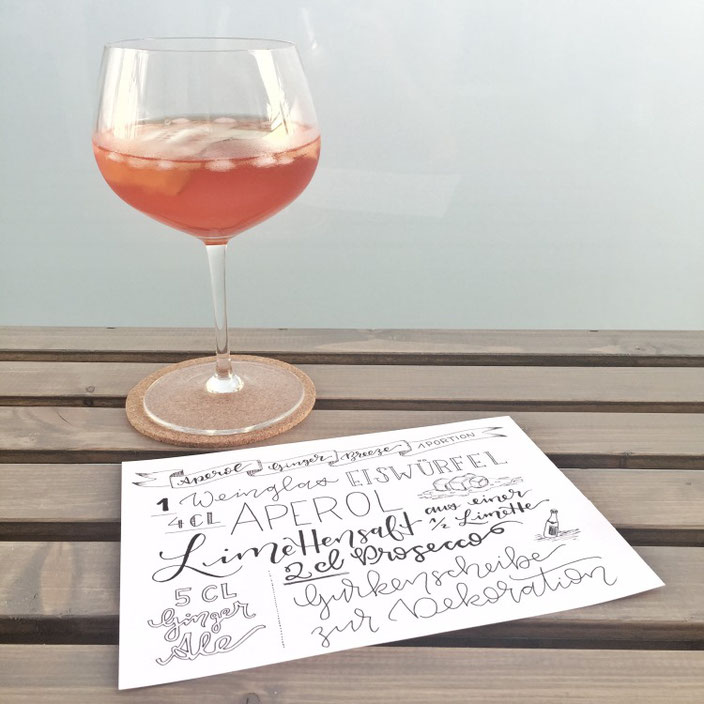 Aperol Ginger Breeze 1 PORTION
1 Weinglas EISWÜRFEL
4CL APEROL
Limettensaft aus einer ½ Limette
2cl Prosecco
5 CL Ginger Ale
Gurkenscheibe
zur Dekoration